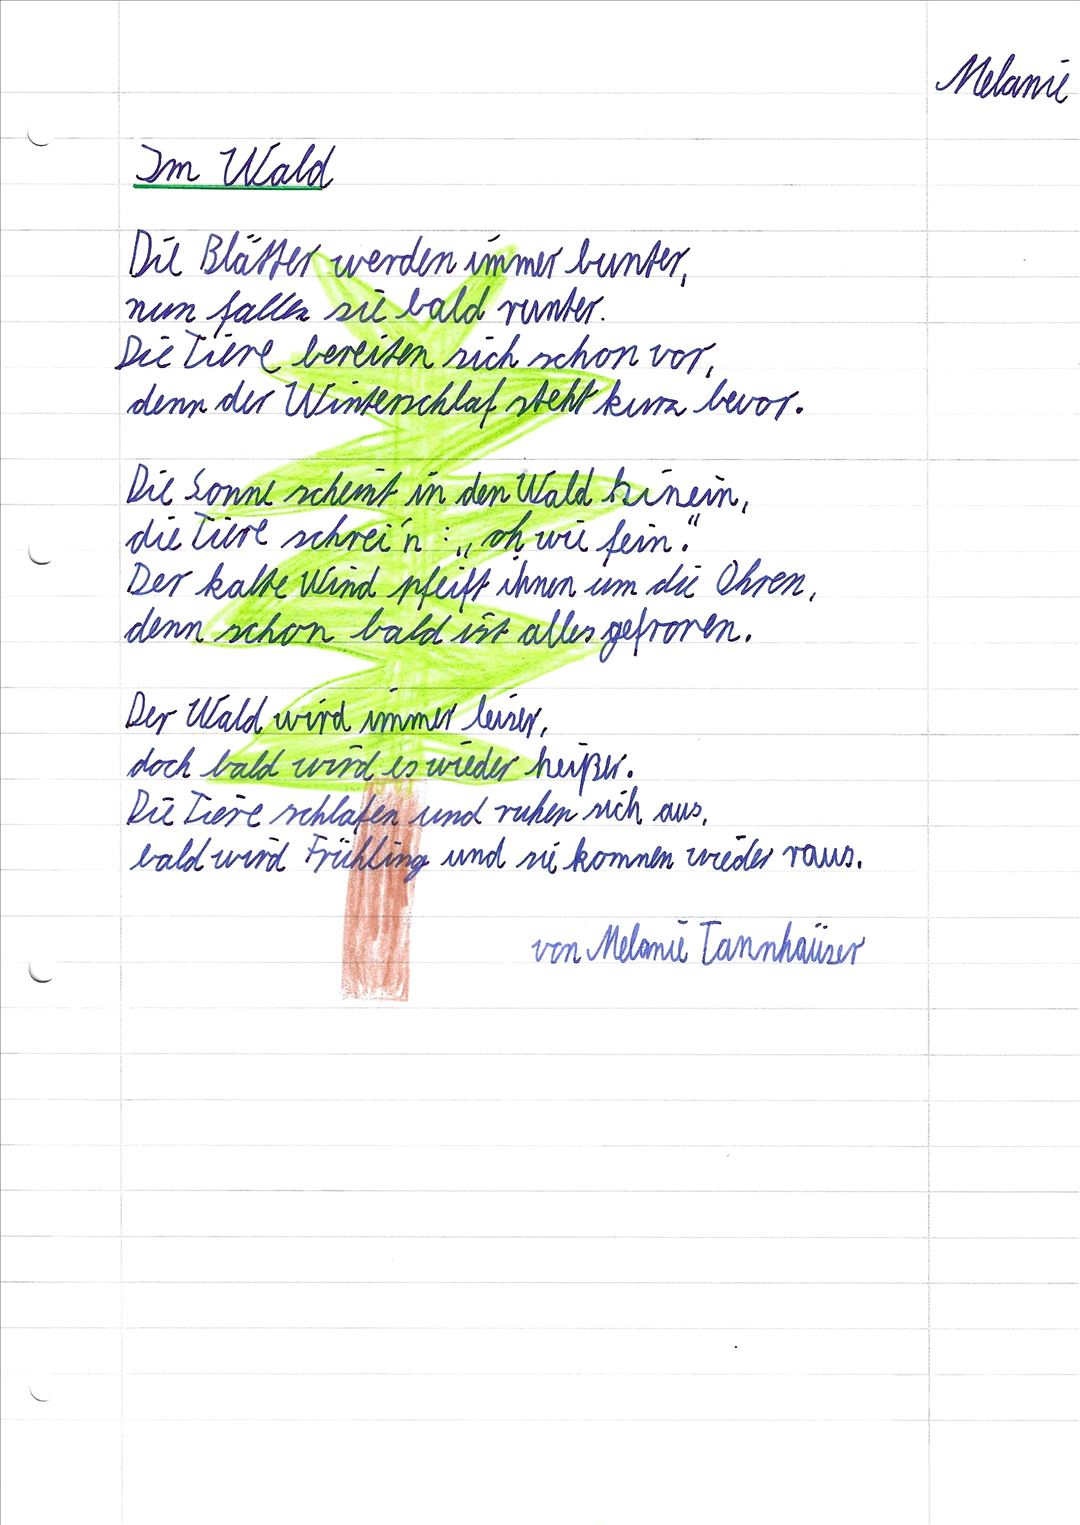 Melanie
Im Wald
Die Blätter werden immer bunter,
nun fallen sie bald runter.
Die Tiere bereiten sich schon vor,
denn der Winterschlaf steht kurz bevor.
Die Sonne scheint in den Wald hinein,
die Tiere schrei'n: „oh wie fein."
Der kalte Wind pfeift ihnen um die Ohren,
denn schon bald ist alles gefroren.
Der Wald wird immer leiser,
doch bald wird es wieder heißer.
Die Tiere schlafen und ruhen sich aus,
bald wird Frühling und sie kommen wieder raus.
von Melanie Tannhäuser